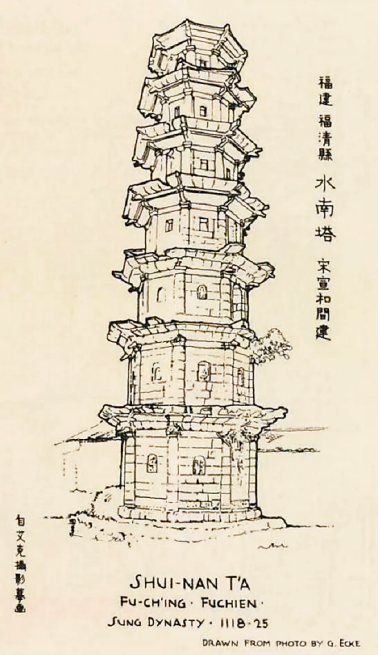 福建 福清縣 水南塔 宋宣和間建
自艾克攝影摹畫
SHUI-NAN T'A
FU-CH'ING · FUCHIEN ·
SUNG DYNASTY · 1118-25
DRAWN FROM PHOTO BY G. ECKE